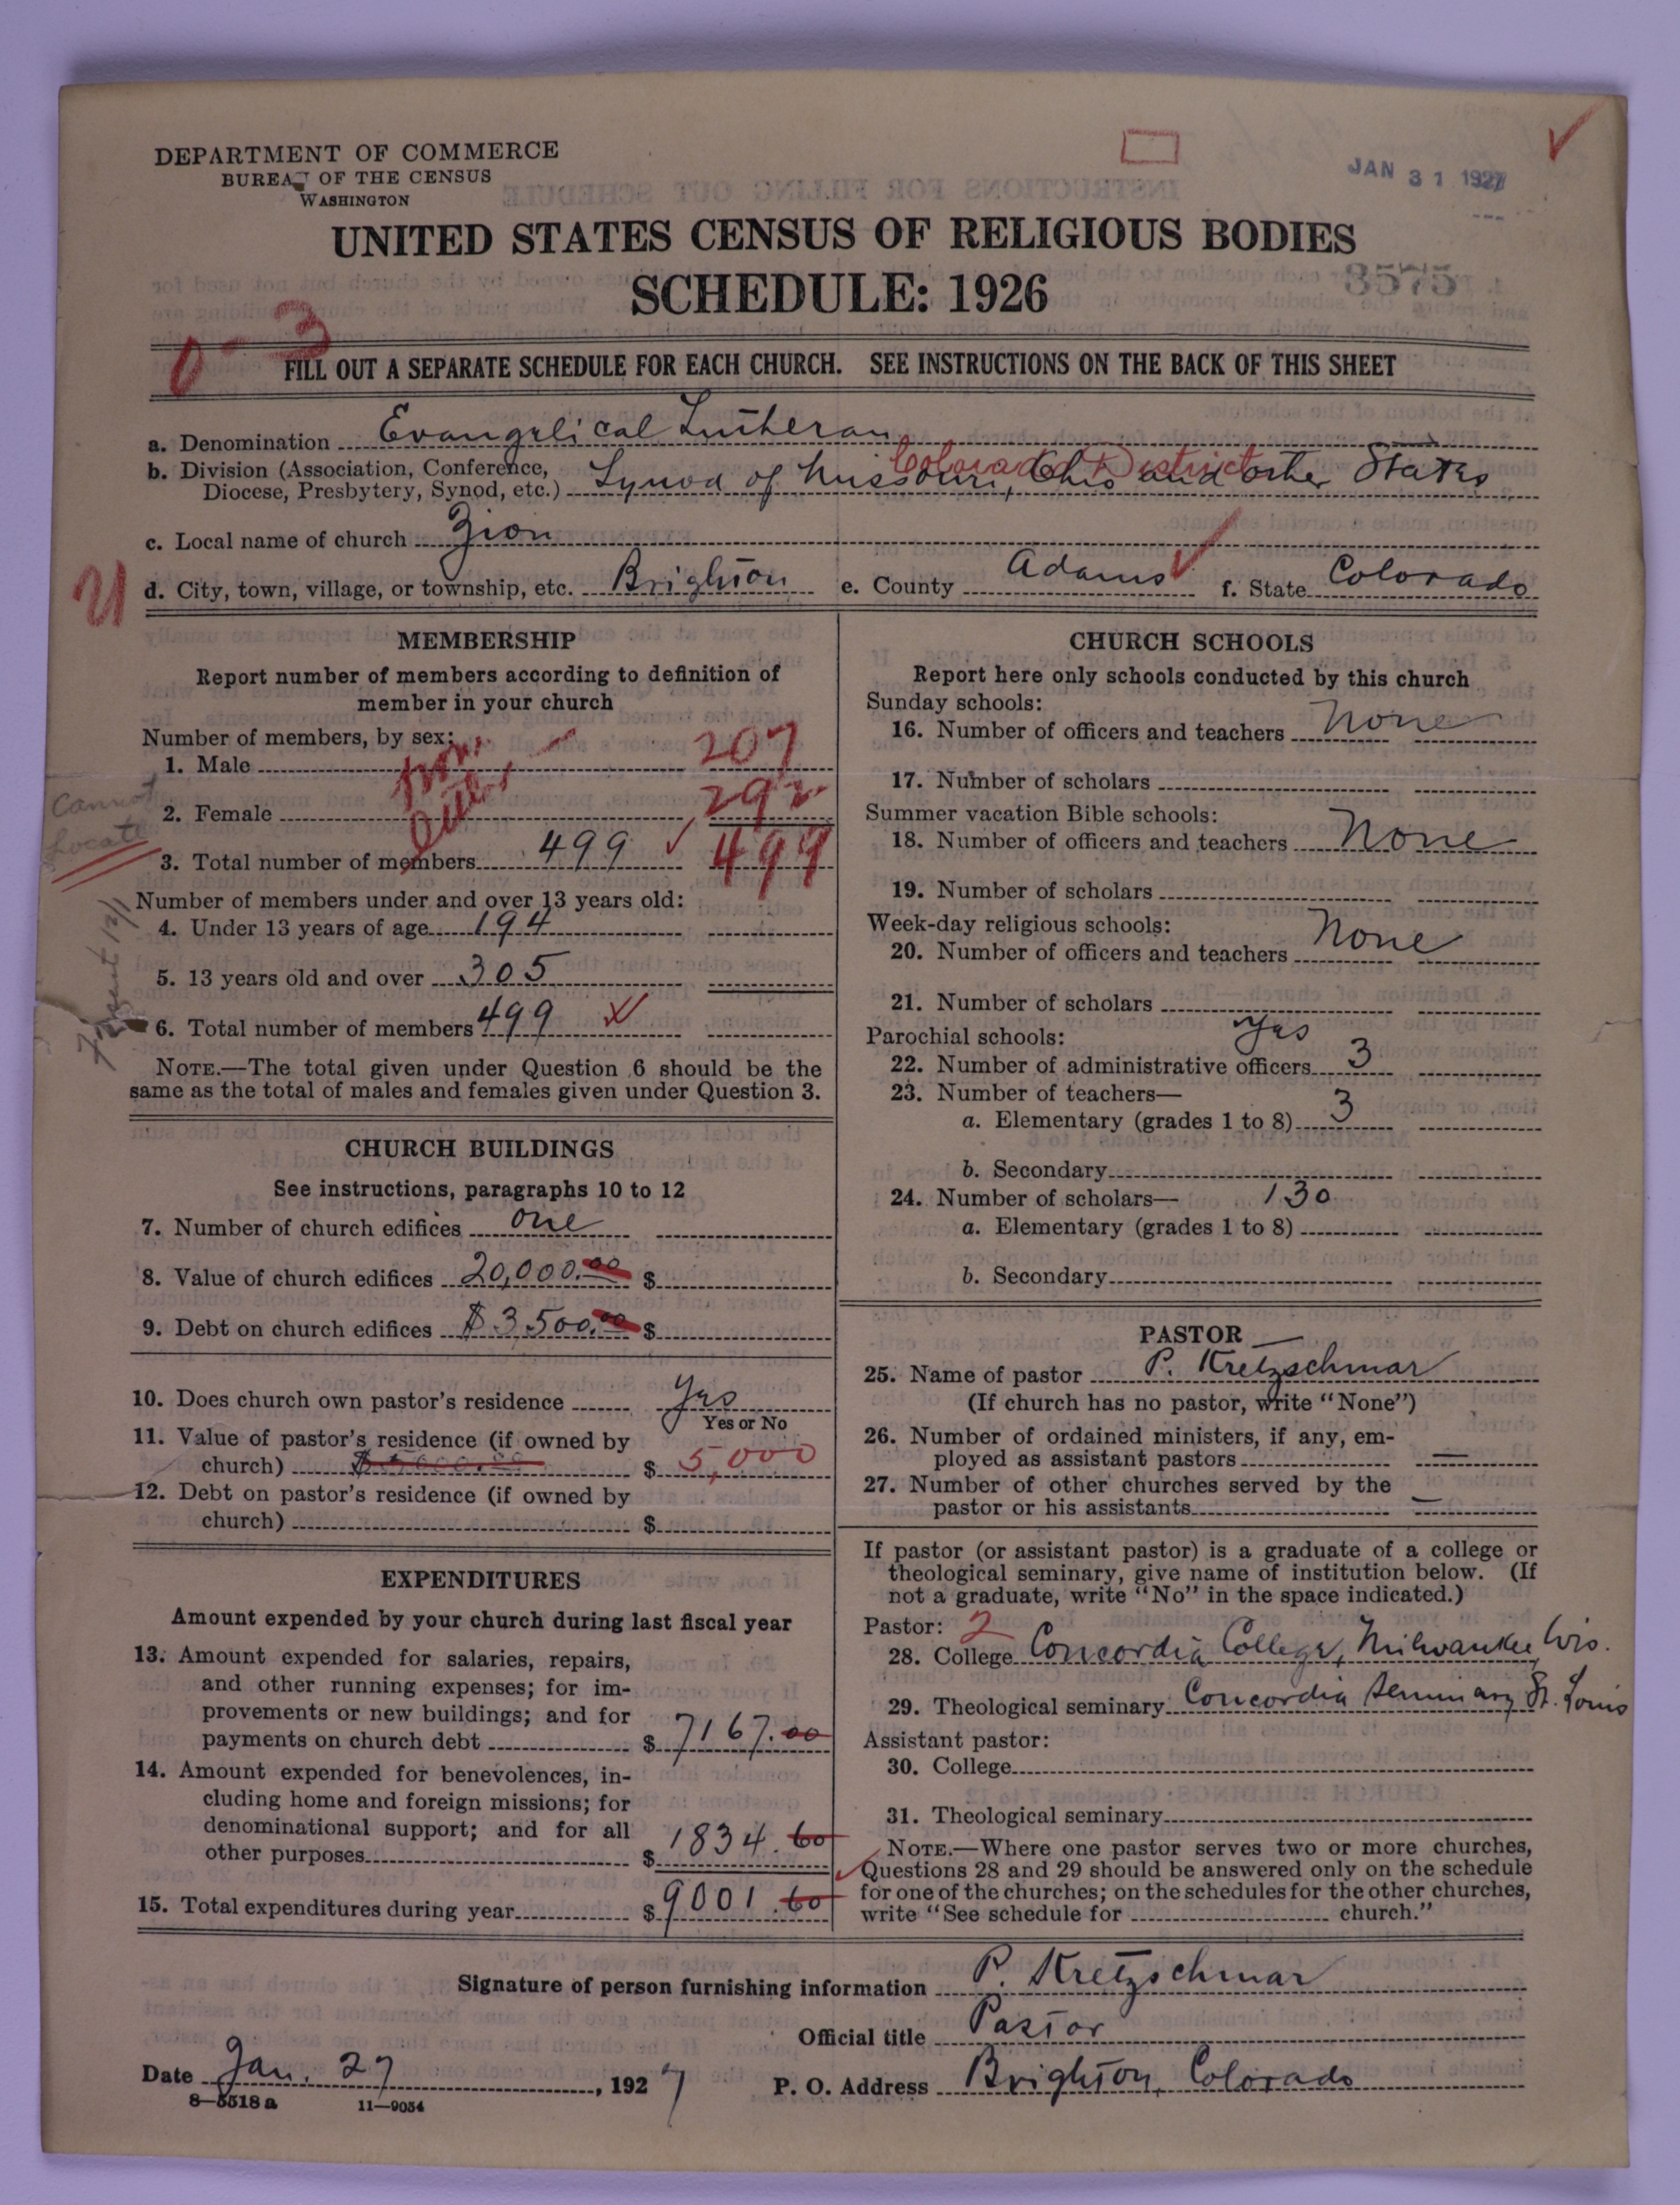 DEPARTMENT OF COMMERCE
BUREAU OF THE CENSUS
WASHINGTON
JAN 31 1927
UNITED STATES CENSUS OF RELIGIOUS BODIES
SCHEDULE: 1926
8575
0-3
FILL OUT A SEPARATE SCHEDULE FOR EACH CHURCH. SEE INSTRUCTIONS ON THE BACK OF THIS SHEET
a. Denomination Evangelical Lutheran
Colorado District
b. Division (Association, Conference,
Diocese, Presbytery, Synod, etc.) Synod of Missouri, Ohio and other States
c. Local name of church Zion
d. City, town, village, or township, etc. Brighton e. County Adams f. State Colorado
MEMBERSHIP
Report number of members according to definition of
member in your church
Number of members, by sex:
1. Male 207
2. Female 292
Cannot
Locate
3. Total number of members 499 499
Number of members under and over 13 years old:
4. Under 13 years of age 194
5. 13 years old and over 305
6. Total number of members 499
NOTE.—The total given under Question 6 should be the
same as the total of males and females given under Question 3.
CHURCH BUILDINGS
See instructions, paragraphs 10 to 12
7. Number of church edifices one
8. Value of church edifices 20,000.00 $
9. Debt on church edifices $3500.00 $
10. Does church own pastor's residence yes
Yes or No
11. Value of pastor's residence (if owned by
church) $ 5,000
12. Debt on pastor's residence (if owned by
church) $
EXPENDITURES
Amount expended by your church during last fiscal year
13. Amount expended for salaries, repairs,
and other running expenses; for im-
provements or new buildings; and for
payments on church debt $ 7167.00
14. Amount expended for benevolences, in-
cluding home and foreign missions; for
denominational support; and for all
other purposes $ 1834.60
15. Total expenditures during year $ 9001.60
CHURCH SCHOOLS
Report here only schools conducted by this church
Sunday schools:
16. Number of officers and teachers None
17. Number of scholars
Summer vacation Bible schools:
18. Number of officers and teachers None
19. Number of scholars
Week-day religious schools:
20. Number of officers and teachers None
21. Number of scholars
Parochial schools: yes
22. Number of administrative officers 3
23. Number of teachers—
a. Elementary (grades 1 to 8) 3
b. Secondary
24. Number of scholars— 130
a. Elementary (grades 1 to 8)
b. Secondary
PASTOR
25. Name of pastor P. Kretzschmar
(If church has no pastor, write "None")
26. Number of ordained ministers, if any, em-
ployed as assistant pastors —
27. Number of other churches served by the
pastor or his assistants —
If pastor (or assistant pastor) is a graduate of a college or
theological seminary, give name of institution below. (If
not a graduate, write "No" in the space indicated.)
Pastor: 2
28. College Concordia College, Milwaukee, Wis.
29. Theological seminary Concordia Seminary St. Louis
Assistant pastor:
30. College
31. Theological seminary
NOTE.—Where one pastor serves two or more churches,
Questions 28 and 29 should be answered only on the schedule
for one of the churches; on the schedules for the other churches,
write "See schedule for church."
Signature of person furnishing information P. Kretzschmar
Official title Pastor
Date Jan. 27, 1927 P. O. Address Brighton, Colorado
8—5518 a 11—9054